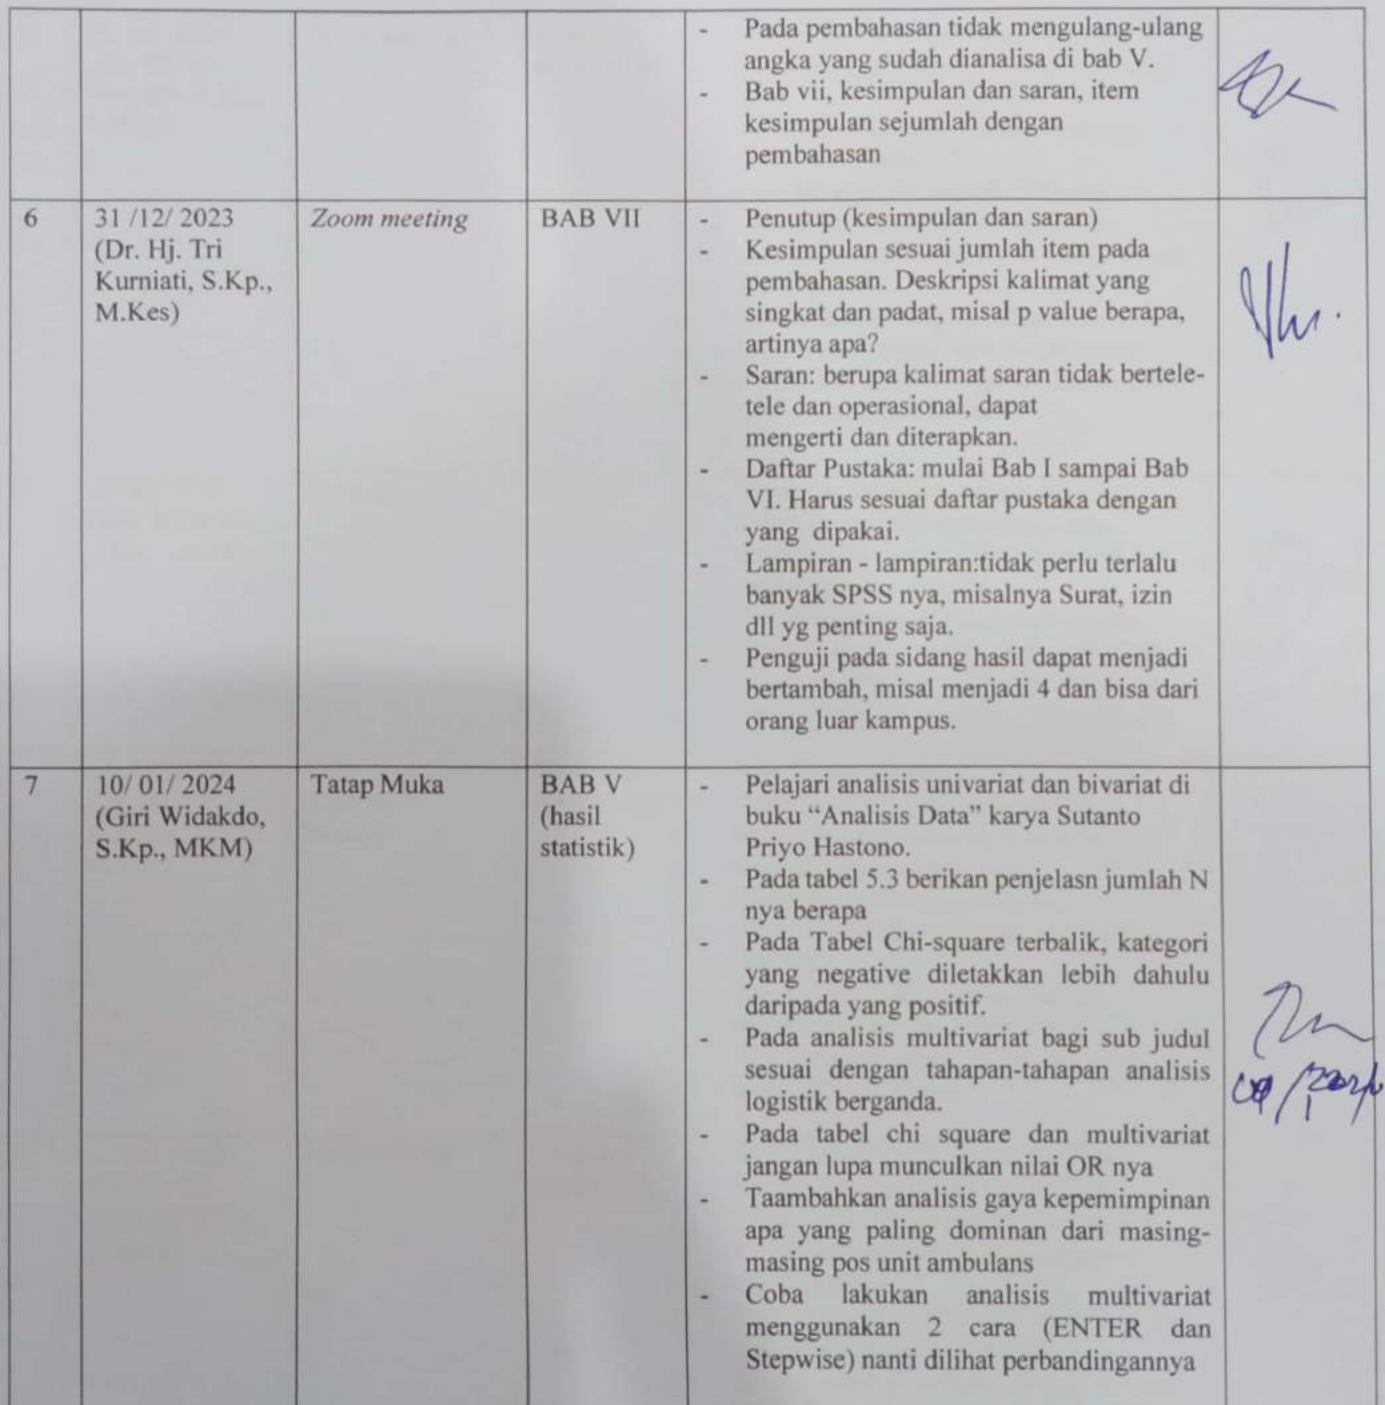 - Pada pembahasan tidak mengulang-ulang
angka yang sudah dianalisa di bab V.
- Bab vii, kesimpulan dan saran, item
kesimpulan sejumlah dengan
pembahasan
6
31 /12/ 2023
(Dr. Hj. Tri
Kurniati, S.Kp.,
M.Kes)
Zoom meeting
BAB VII
- Penutup (kesimpulan dan saran)
- Kesimpulan sesuai jumlah item pada
pembahasan. Deskripsi kalimat yang
singkat dan padat, misal p value berapa,
artinya apa?
- Saran: berupa kalimat saran tidak bertele-
tele dan operasional, dapat
mengerti dan diterapkan.
- Daftar Pustaka: mulai Bab I sampai Bab
VI. Harus sesuai daftar pustaka dengan
yang dipakai.
- Lampiran - lampiran:tidak perlu terlalu
banyak SPSS nya, misalnya Surat, izin
dll yg penting saja.
- Penguji pada sidang hasil dapat menjadi
bertambah, misal menjadi 4 dan bisa dari
orang luar kampus.
7
10/ 01/ 2024
(Giri Widakdo,
S.Kp., MKM)
Tatap Muka
BAB V
(hasil
statistik)
- Pelajari analisis univariat dan bivariat di
buku “Analisis Data” karya Sutanto
Priyo Hastono.
- Pada tabel 5.3 berikan penjelasn jumlah N
nya berapa
- Pada Tabel Chi-square terbalik, kategori
yang negative diletakkan lebih dahulu
daripada yang positif.
- Pada analisis multivariat bagi sub judul
sesuai dengan tahapan-tahapan analisis
logistik berganda.
- Pada tabel chi square dan multivariat
jangan lupa munculkan nilai OR nya
- Taambahkan analisis gaya kepemimpinan
apa yang paling dominan dari masing-
masing pos unit ambulans
- Coba lakukan analisis multivariat
menggunakan 2 cara (ENTER dan
Stepwise) nanti dilihat perbandingannya